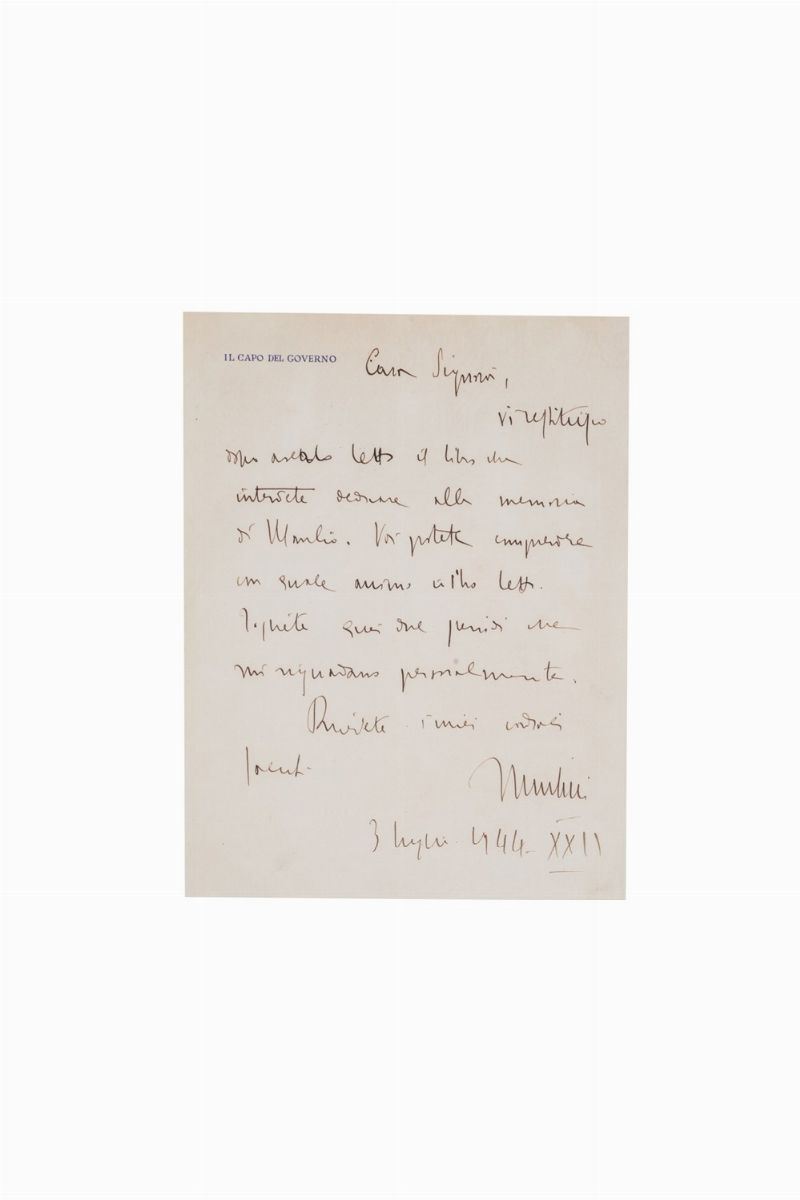 IL CAPO DEL GOVERNO
Cara Signora,
vi restituisco
dopo averlo letto il libro che
intendete dedicare alla memoria
di Manlio. Voi potete comprendere
con quale animo l'ho letto.
quei due periodi che
mi riguardano personalmente.
i miei cordiali
saluti
Mussolini
3 luglio 1944 - XXII